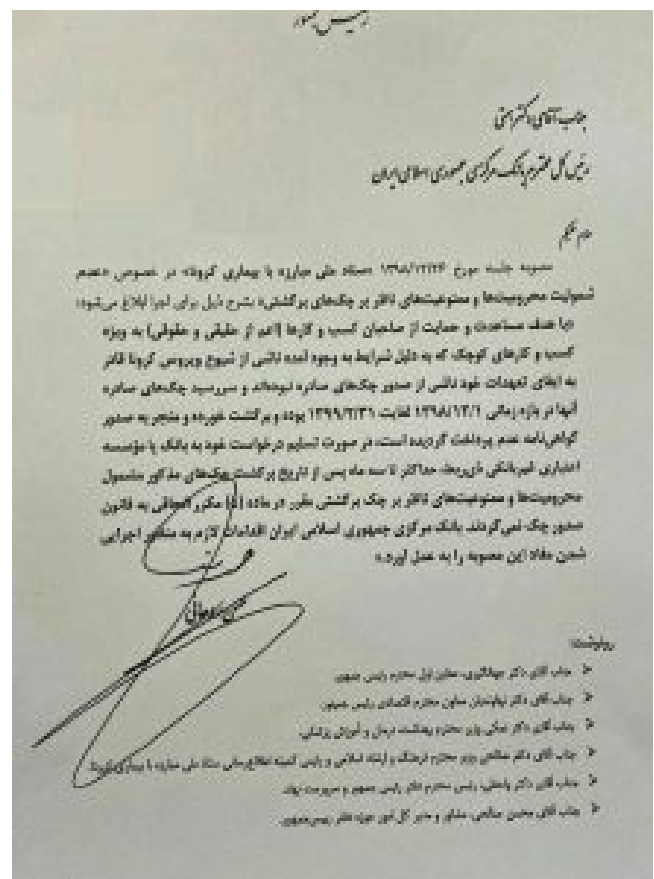 رئیس جمهور
جناب آقای دکتر همتی
رئیس کل محترم بانک مرکزی جمهوری اسلامی ایران
سلام علیکم
مصوبه جلسه مورخ ۱۳۹۸/۱۲/۲۴ «ستاد ملی مبارزه با بیماری کرونا» در خصوص «عدم
شمولیت محرومیت‌ها و ممنوعیت‌های ناظر بر چک‌های برگشتی» بشرح ذیل برای اجرا ابلاغ می‌شود:
«با هدف مساعدت و حمایت از صاحبان کسب و کارها (اعم از حقیقی و حقوقی) به ویژه
کسب و کارهای کوچک که به دلیل شرایط به وجود آمده ناشی از شیوع ویروس کرونا قادر
به ایفای تعهدات خود ناشی از صدور چک‌های صادره نبوده‌اند و سررسید چک‌های صادره
آنها در بازه زمانی ۱۳۹۸/۱۲/۱ لغایت ۱۳۹۹/۲/۳۱ بوده و برگشت خورده و منجر به صدور
گواهی‌نامه عدم پرداخت گردیده است، در صورت تسلیم درخواست خود به بانک یا مؤسسه
اعتباری غیربانکی ذی‌ربط، حداکثر تا سه ماه پس از تاریخ برگشت چک‌های مذکور مشمول
محرومیت‌ها و ممنوعیت‌های ناظر بر چک برگشتی مقرر در ماده مکرر الحاقی به قانون
صدور چک نمی‌گردند. بانک مرکزی جمهوری اسلامی ایران اقدامات لازم به منظور اجرایی
شدن مفاد این مصوبه را به عمل آورد.»
حسن روحانی
رونوشت:
جناب آقای دکتر جهانگیری، معاون اول محترم رئیس جمهور
جناب آقای دکتر نهاوندیان معاون محترم اقتصادی رئیس جمهور
جناب آقای دکتر نمکی وزیر محترم بهداشت، درمان و آموزش پزشکی
جناب آقای دکتر صالحی وزیر محترم فرهنگ و ارشاد اسلامی و رئیس کمیته اطلاع‌رسانی ستاد ملی مبارزه با بیماری کرونا
جناب آقای دکتر واعظی، رئیس محترم دفتر رئیس جمهور و سرپرست نهاد
جناب آقای محسن صالحی، مشاور و مدیر کل امور حوزه دفتر رییس‌جمهور